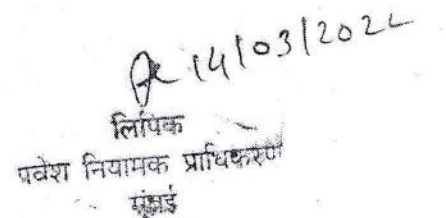 14/03/2022
लिपिक
प्रवेश नियामक प्राधिकरण
मुंबई